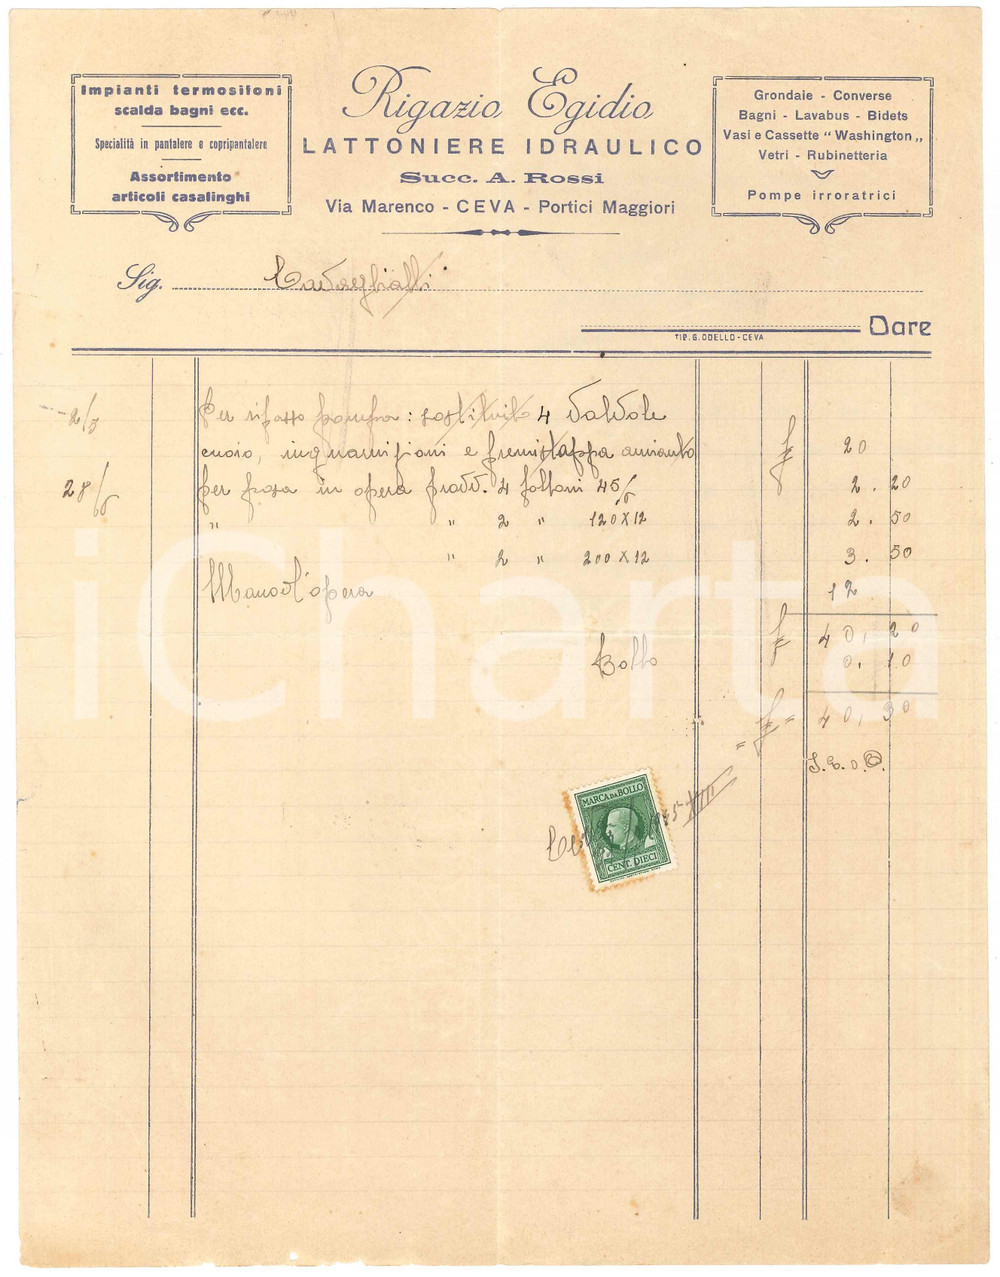 Impianti termosifoni
scalda bagni ecc.
Specialità in pantalere e copripantalere
Assortimento
articoli casalinghi
Rigazio Egidio
LATTONIERE IDRAULICO
Succ. A. Rossi
Via Marenco - CEVA - Portici Maggiori
Grondaie - Converse
Bagni - Lavabus - Bidets
Vasi e Cassette “Washington„
Vetri - Rubinetteria
Pompe irroratrici
Sig.
Dare
TIP. G. ODELLO - CEVA
2/5 Per ripasso pompa: sostituito 4 valvole
cuoio, inguarnizioni e premistappa amianto £ 20
28/6 per posa in opera provv. 4 45/6 2.20
" " 2 " 120X12 2.50
" 2 " 200X12 3.50
Mano d'opera 12
£ 40,20
Bollo 0.10
= £ = 40,30
S.E.o.O.
MARCA DA BOLLO
1935 XIII
CENT. DIECI
iCharta